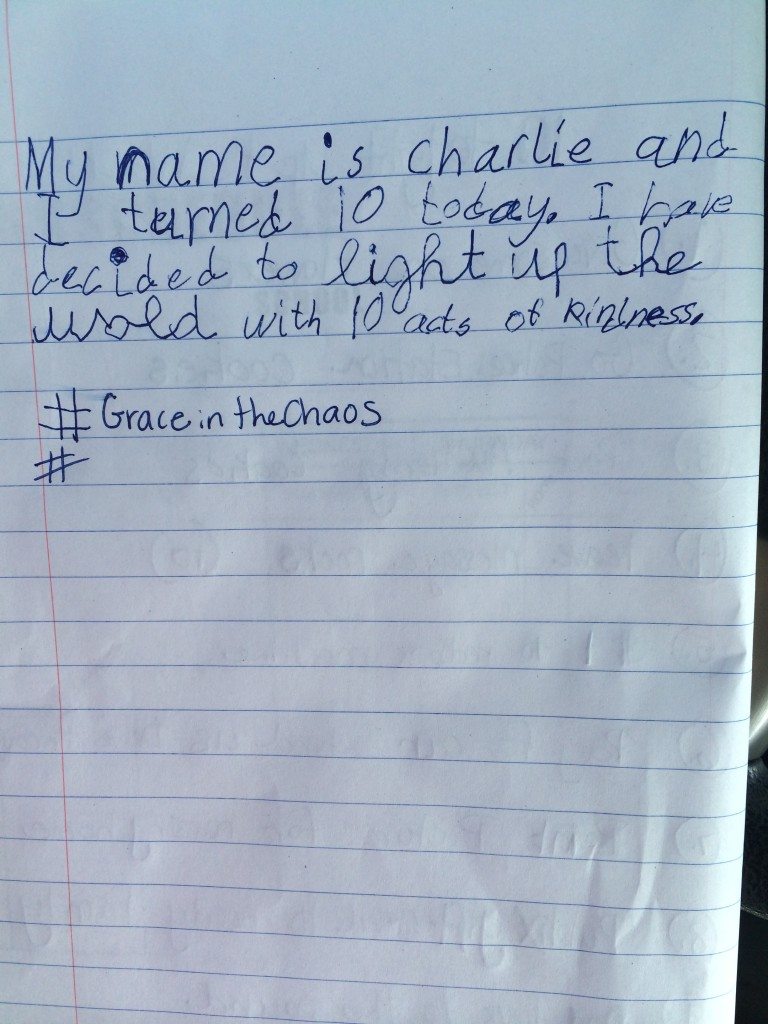 My name is charlie and
I turned 10 today. I have
decided to light up the
wold with 10 acts of kindness.
#Grace in the Chaos
#